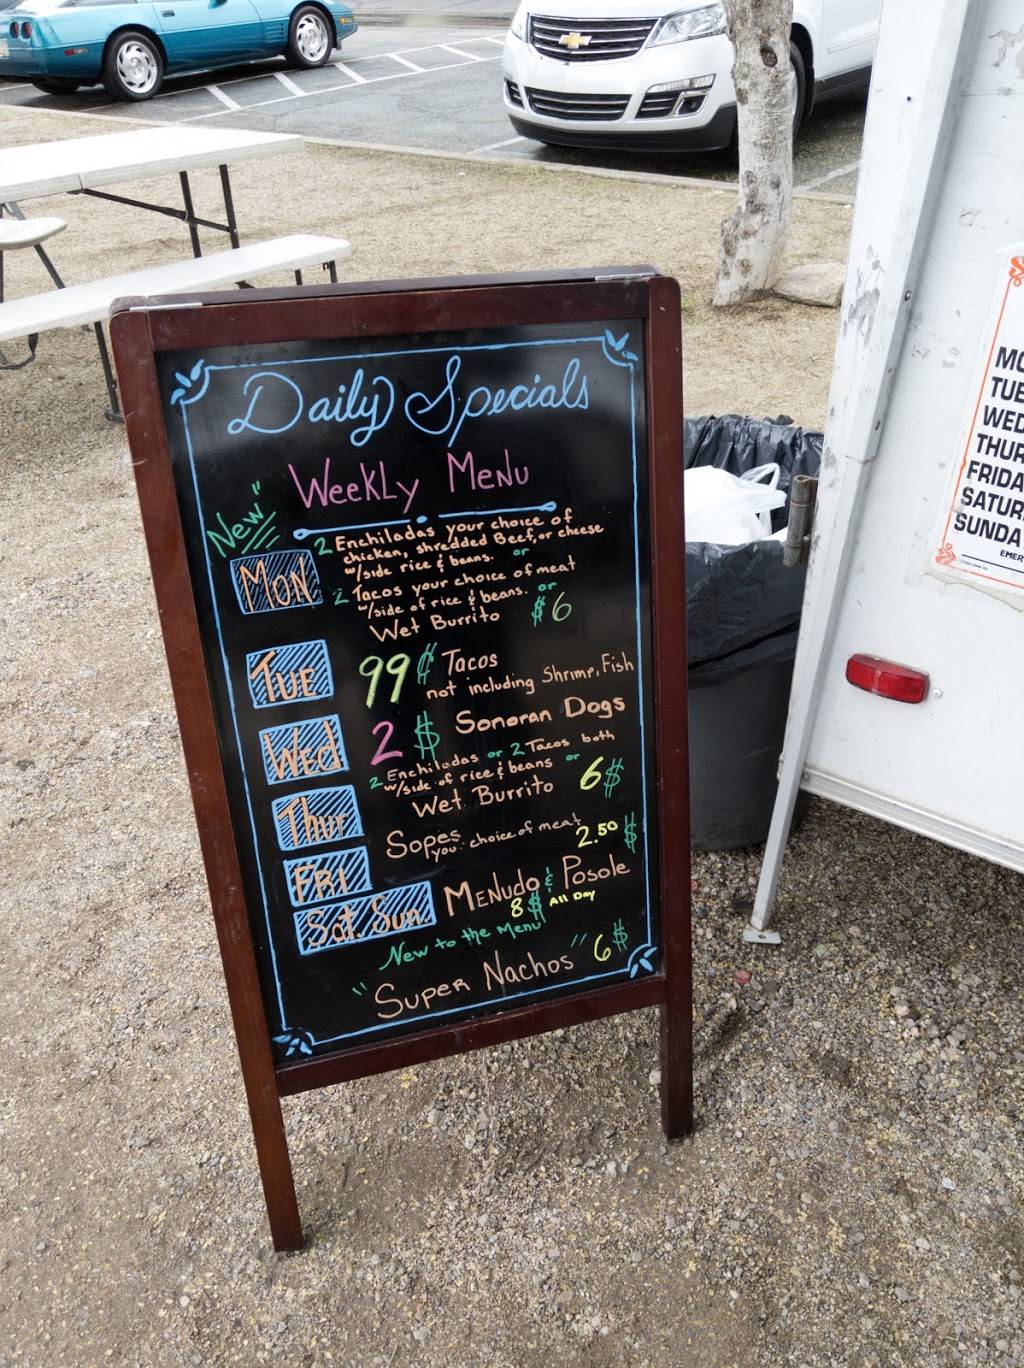 Daily Specials
Weekly Menu
"New"
MON
2 Enchiladas your choice of
chicken, shredded Beef, or cheese
w/side rice & beans. or
2 Tacos your choice of meat
w/side of rice & beans. or
Wet Burrito $6
TUE
99¢ Tacos
not including Shrimp, Fish
Wed
2$ Sonoran Dogs
2 Enchiladas or 2 Tacos both
w/side of rice & beans or
Wet Burrito 6$
Thur
Sopes
you choice of meat
2.50 $
FRI
Sat. Sun
MENudo & Posole
8$ All Day
New to the Menu
"Super Nachos" 6$
MO
TUE
WED
THUR
FRIDA
SATUR
SUNDA
EMER